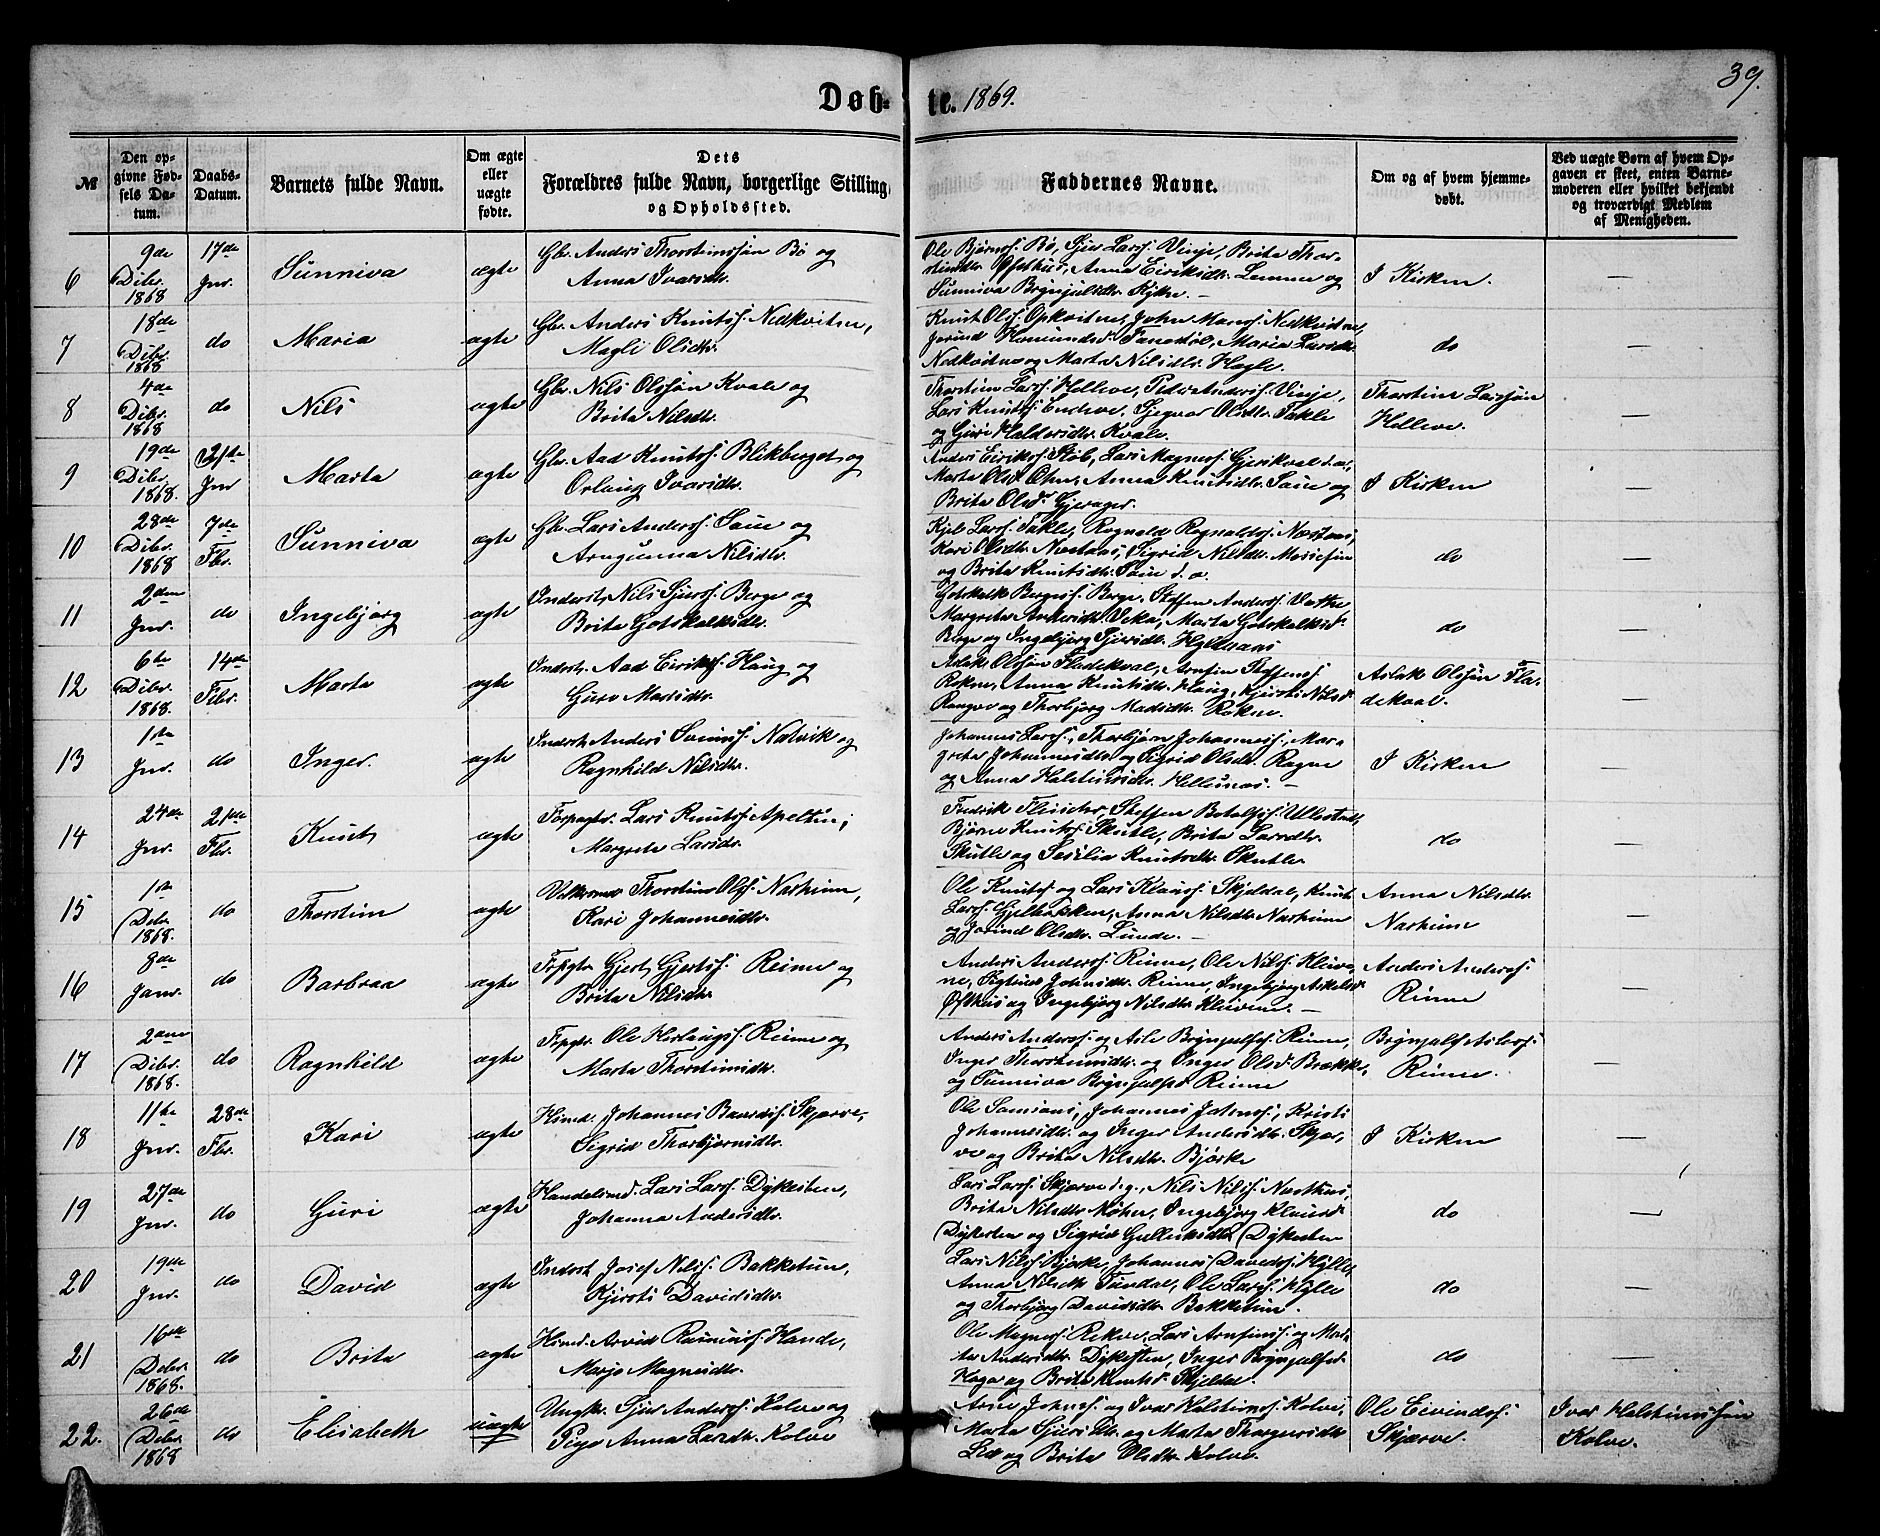 Døb-
te. 1869.
39.
№
Den op-
givne Fød-
sels Da-
tum.
Daabs-
Datum.
Barnets fulde Navn.
Om ægte
eller
uægte
fødte.
Dets
Forældres fulde Navn, borgerlige Stilling
og Opholdssted.
Faddernes Navne.
Om og af hvem hjemme-
døbt.
Ved uægte Børn af hvem Op-
gaven er skeet, enten Barne-
moderen eller hvilket bekjendt
og troværdigt Medlem
af Menigheden.
6
9de
Dcbr.
1868
17de
Jnr.
Sunniva
ægte
Gbr. Anders Thorsteinssøn Bø og
Anna Ivarsdtr.
Ole Bjørnss. Bø, Sjur Larss. Vinje, Brita Thor-
steinsdtr. Øfsthus, Anna Eiriksdtr. Lemme og
Sunniva Brynjulsdtr. Rykke. —
I Kirken.
—
7
18de
Dcbr.
1868
do
Maria
ægte
Gbr. Anders Knutss. Nedkvitne,
Magli Olsdtr.
Knut Olss. Opkvitne, John Monss. Nedkvitne,
Jorind Romundsd. Tanestøl, Maria Larsdtr.
Nedkvitne og Marta Nilsdtr. Hagle.
do
—
8
4de
Dcbr.
1868
do
Nils
ægte
Gbr. Nils Olssøn Kvale og
Brita Nilsdtr.
Thorstein Larss. Helleve, Peder Anderss. Vinje,
Lars Knutss. Endeve, Gjegvor Olsdtr. Takle
og Guri Haldorsdtr. Kvale.
Thorstein Larssøn
Helleve.
—
9
19de
Dcbr.
1868.
21de
Jnr
Marta
ægte
Gbr. Aad Knutss. Blikberget og
Orlaug Ivarsdtr.
Anders Eirikss. Støb, Lars Magness. Gjerskval d.æ.,
Marta Olsd. Ohn, Anna Knutsdtr. Saue og
Brita Olsd. Gjerager.
I Kirken
—
10
28de
Dcbr.
1868
7de
Fbr.
Sunniva
ægte
Gbr. Lars Anderss. Saue og
Arngunna Nilsdtr.
Kjel Larss. Takle, Ragnald Ragnaldss. Næstaas,
Kari Olsdtr. Næstaas, Sigrid Nilsdtr.
og Brita Knutsdtr. Saue d.æ.
do
—
11
2den
Jnr.
do
Ingebjørg
ægte
Inderst, Nils Sjurss. Berge og
Brita Gotskalksdtr.
Gotskalk Bergess. Berge, Steffen Anderss. Væthe
Margreta Andersdtr. Veka, Marta Gotskalksd.
Berge og Ingebjørg Sjursdtr. Hyldnæs
do
—
12
6te
Dcbr.
1868.
14de
Fbr.
Marta
ægte
Inderst. Aad Eirikss. Haug og
Guro Madsdtr.
Aslak Olssøn Fladekval, Arnfin Steffenss.
Rokne, Anna Knutsdtr. Haug, Kjersti Nilsd.
Rongve og Thorbjørg Madsdtr. Rokne.
Aslak Olssøn Fla-
dekval.
—
13
1ste
Jnr.
do
Inger.
ægte
Inderst. Anders Sveinss. Nætvik og
Ragnhild Nilsdtr.
Johannes Larss., Thorbjørn Johanness., Mar-
greta Johannesdtr. og Sigrid Olsdtr. Rogne
og Anna Halsteinsdtr. Hellesnæs. —
I Kirken
—
14
24de
Jnr.
21de
Fbr.
Knut
ægte
Forpagter. Lars Knutss. Apeltun;
Margreta Larsdr.
Fredrik Fleischer, Steffen Botolfss. Ullestad,
Bjørne Knutss. Skutle, Brita Larsdtr.
Skutle og Sesilia Knutsdtr. Skutle
do
—
15
1ste
Debr.
1868.
do
Thorstein
ægte
Thorstein Olss. Nærheim,
Kari Johannesdtr.
Ole Knutss. og Lars Klauss. Skjeldal, Knut
Larss. Gjelbakken, Anna Nilsdtr. Nærheim
og Jorind Olsdtr. Lunde. —
Anna Nilsdtr.
Nærheim
—
16
8de
Janr.
do
Barbraa
ægte
Frpgtr. Gjert Gjertss. Reime og
Brita Nilsdtr.
Anders Anderss. Rinne, Ole Nilss. Kleive-
ne, Sigtrud Johnsdtr. Rinne, Ingebjørg Askelsd.
Øfsthus og Ingebjørg Nilsdtr. Kleivene. —
Anders Anderss.
Rinne
—
17
2den
Debr.
1868.
do
Ragnhild
ægte
Frpgtr. Ole Herlaugss. Reime og
Marta Thorsteinsdtr.
Anders Anderss. og Asle Brynjulfss. Rinne,
Inger Thorsteinsdtr. og Inger Olsd. Brække,
og Sunniva Brynjulfsd. Rinne
Brynjulf Asless.
Rinne.
—
18
11te
Jnr.
28de
Fbr.
Kari
ægte
Husmd. Johannes Baardss. Skjerve,
Sigrid Thorbjørnsdtr.
Ole Samsons., Johannes Johnss., Kristi
Johannesdtr. og Inger Andersdtr. Skjer-
ve og Brita Nilsdtr. Bjørke
I Kirken
—
19
27de
Jnr.
do
Guri
ægte
Handelsmd. Lars Larss. Dykesten,
Johanna Andersdtr.
Lars Larss. Skjerve d.y., Nils Nilss. Næsthus,
Brita Nilsdtr. Møhn, Ingebjørg Klausd.
Dykesten og Sigrid Gulleiksdtr. Dykesten
do
—
20
19de
Jnr.
do
David
ægte
Inderst. Josef Nilss. Bakketun,
Kjersti Davidsdtr.
Lars Nilss. Bjørke, Johannes Davidss. Hylle,
Anna Nilsdtr. Tundal, Ole Larss. Hylle
og Thorbjørg Davidsdtr. Bakketun.
do
—
21
16de
Debr.
1868.
do
Brita
ægte
Husmd. Arvid Rasmuss. Hande,
Marjo Magnesdtr.
Ole Magness. Rekve, Lars Arnfinss. og Mar-
ta Andersdtr. Dykesten, Inger Brynjulfsd.
Haga og Brita Knutsd. Skjeldal.
do
—
22.
26de
Debr.
1868
do
Elisabeth
uægte
Ungkr. Sjur Anderss. Kolve og
Pige Anna Larsdtr. Kolve
Arne Johnss. og Ivar Halsteinss. Kolve,
Marta Sjursdtr. og Marta Thorgersdtr.
Lid og Brita Olsdtr. Kolve.
Ole Eivindss.
Skjerve.
Ivar Halsteinssøn
Kolve.